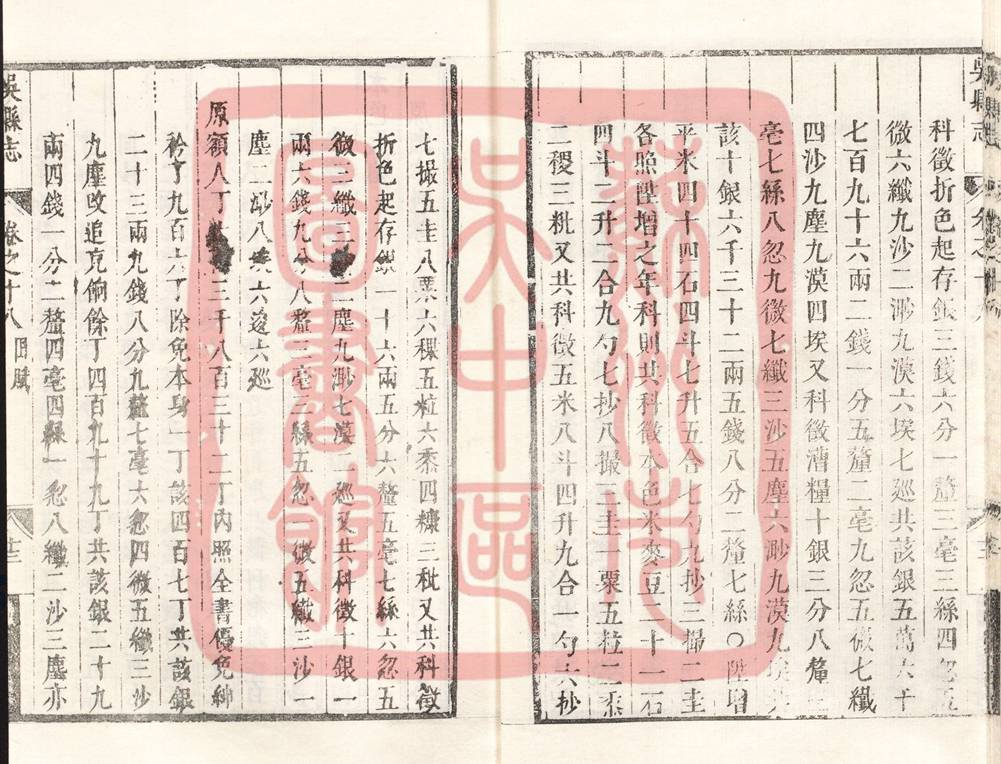 科徵折色起存銀三錢六分一釐三毫三絲四忽五
微六纖九沙二渺九漠六埃七廵共該銀五萬六千
七百九十六兩二錢一分五釐二毫九忽五微七纖
四沙九塵九漠四埃又科徵漕糧十銀三分八釐
毫七絲八忽九微七纖三沙五塵六渺九漠九埃共
該十銀六千三十二兩五錢八分二釐七絲○陞增
平米四十四石四斗七升五合七勺九抄三撮二圭
各照陞增之年科則共科徵本色米麥豆二十一石
四斗二升二合九勺七抄八撮三圭一粟五粒二黍
二稷三粃又共科徵五米八斗四升九合一勺六抄
七撮五圭八粟六稞五粒六黍四糠三秕又共科徵
折色起存銀一十六兩五分六釐五毫七絲六忽五
微二纖三 二塵九渺七漠二廵又共科徵十銀一
兩六錢九分八釐三毫三絲五忽 微五纖三沙一
塵二渺八埃六逡六廵
原額人丁 三千八百三十二丁內照全書優免紳
衿丁九百六丁除免本身一丁該四百七丁共該銀
二十三兩九錢八分九釐七毫六忽四微五纖三沙
九塵改追充餉餘丁四百九十九丁共該銀二十九
兩四錢一分二釐四毫四絲一忽八纖二沙三塵亦
吳縣志 卷之十八 田賦
吳縣志
蘇州市
吳中區
圖書館